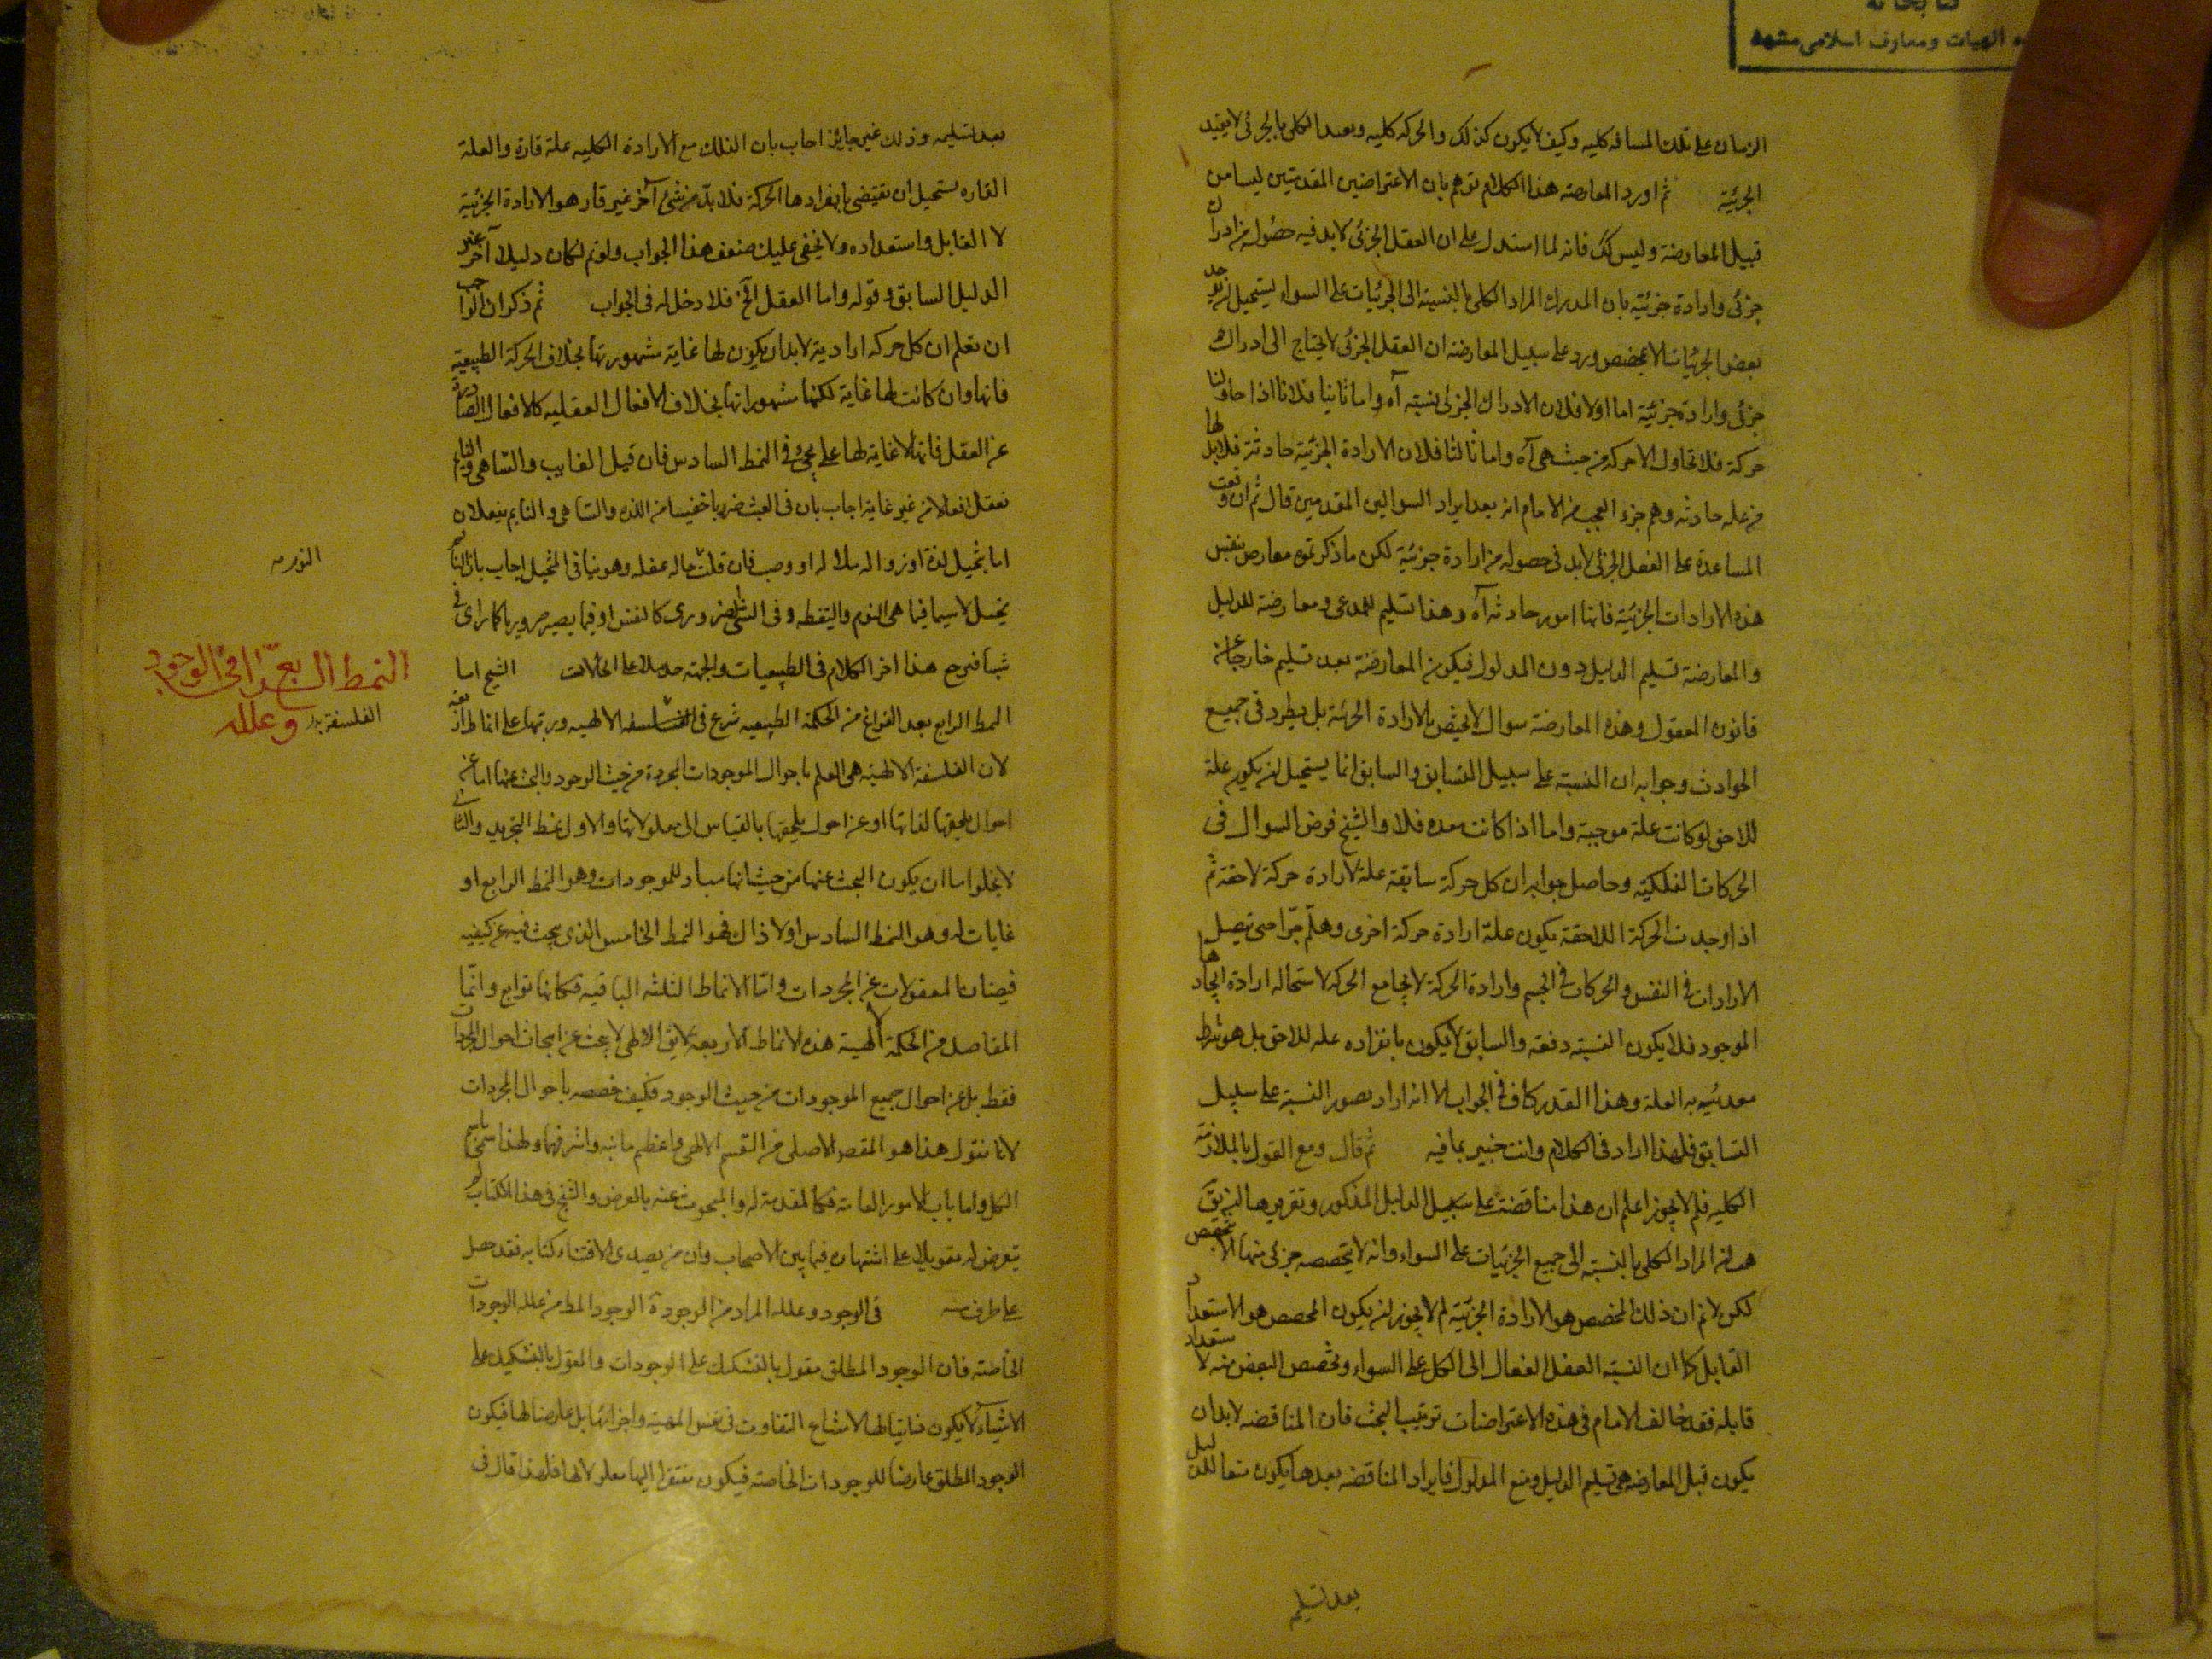 كتابخانه
الهيات ومعارف اسلامى مشهد
الزمان على تلك المسافه كليه وكيف لا يكون كذلك والحركه كليه وبعد الكلى بالجزئى لا يفيد
الجزئية ثم اورد المعارضه هذا الكلام توهم بان الاعتراضين المقدمين ليسا من
قبيل المعارضة وليس كك فانه لما استدل على ان العقل الجزئى لا بد فيه حصوله من ادراك
جزئى وارادة جزئية بان المدرك المراد الكلى بالنسبة الى الجزئيات على السواء يستحيل
بعض الجزئيات الا بمخصص ورد على سبيل المعارضة ان العقل الجزئى لا يحتاج الى ادراك
جزئى وارادة جزئية اما اولا فلان الادراك الجزئى نسبته آه واما ثانيا فلانا اذا حاولنا
حركة فلا نحاول الا حركة من حيث هى آه واما ثالثا فلان الارادة الجزئية حادثة فلا بد لها
من علة حادثه وهم جرا والعجب من الامام انه بعد ايراد السوالين المقدمين قال ثم ان وقعت
المساعدة على الفعل الجزئى لا بد فى حصوله من ارادة جزئية لكن ما ذكرتموه معارض بنفس
هذه الارادات الجزئية فانها امور حادثه آه وهذا تسليم للمدعى ومعارضة للدليل
والمعارضة تسليم الدليل دون المدلول فيكون المعارضة بعد تسليم خارجا عن
قانون المعقول وهذه المعارضة سوال لا يختص بالارادة الجزئية بل يطرد فى جميع
الحوادث وجوابه ان النسبة على سبيل التسابق والسابق انما يستحيل ان يكون علة
للاحق لو كانت علة موجبة واما اذا كانت معده فلا والشيخ فرض السوال فى
الحركات الفلكية وحاصل جوابه ان كل حركة سابقة علة لارادة حركة لاحقة ثم
اذا وجدت الحركة اللاحقة يكون علة ارادة حركة اخرى وهلم جرا حتى تصل
الارادات فى النفس والحركات فى الجسم وارادة الحركة لا يجامع الحركة لاستحاله ارادة ايجاد
الموجود فلا يكون النسبة دفعه والسابق لا يكون بانفراده علة للاحق بل هو شرط
العلة وهذا القدر كاف فى الجواب الا انه اراد تصور النسبة على سبيل
التسابق فلهذا اراد فى الكلام وانت خبير بما فيه ثم قال ومع القول بالملازمة
الكلية فلم لا يجوز اعلم ان هذا مناقضة على سبيل الدليل المذكور وتقريرها
هب ان المراد الكلى بالنسبة الى جميع الجزئيات على السواء وانه لا يتخصصه جزئى منها الا بمخصص
لكن لا نم ان ذلك المخصص هو الارادة الجزئية لم لا يجوز ان يكون المخصص هو الاستعداد
القابل كما ان النسبة العقل الفعال الى الكل على السواء وتخصص البعض منه لاستعداد
قابله فقد خالف الامام فى هذه الاعتراضات ترتيب البحث فان المناقضه لا بد ان
يكون قبل المعارضه هى تسليم الدليل ومنع المدلول فايراد المناقضه بعدها يكون منعا للدليل
بعد تسليم
بعد تسليمه وذلك غير جائز اجاب بان الفلك مع الارادة الكليه علة قارة والعلة
القاره يستحيل ان تقتضى بانفرادها الحركة فلا بد من شئ آخر غير قار هو الارادة الجزئية
لا القابل واستعداده ولا يخفى عليك ضعف هذا الجواب ولو تم لكان دليلا آخر غير
الدليل السابق وقوله واما العقل الخ فلا دخل له فى الجواب ثم ذكر ان الواجب
ان تعلم ان كل حركه ارادية لا بد ان يكون لها غاية مشعور بها بخلاف الحركة الطبيعية
فانها وان كانت لها غاية لكنها بخلاف الافعال العقليه كالافعال الصادرة
عن العقل فانها لا غاية لها على ما يجئ فى النمط السادس فان قيل العابث والساهى والنايم
تفعل افعالا من غير غاية اجاب بان فى العبث ضربا خفيا من اللذه والساهى والنايم يفعلان
اما بتخيل لذة او زوال حاله ملالة او وصب فان قلت حاله عفله وهو ينافى التخيل اجاب بان النايم
يخيل لا سيما فيما هى النوم واليقظه وفى الشئ الضرورى كالنفس او فيما يصير ضروريا كما راى فى
هذا اخر الكلام فى الطبيعيات والحمد لله على الحالات الشيخ اما
النمط الرابع بعد الفراغ من الحكمة الطبيعيه شرع فى الفلسفه الالهيه ورتبها على انماط اربعه
لان الفلسفة الالهية هى العلم باحوال الموجودات المجردة من حيث الوجود والبحث عنها اما عن
احوال يلحقها لذاتها او عن احوال يلحقها بالقياس الى معلولاتها والاول نمط التجريد والثانى
لا يخلوا اما ان يكون البحث عنها من حيث انها مباد للموجودات وهو النمط الرابع او
غايات له وهو النمط السادس او لا ذاك فهو النمط الخامس الذى يبحث فيه عن كيفيه
فيضان المعقولات عن المجردات واما الانماط الثلثه الباقيه فكانها توابع وانما
المقاصد من الحكمة الالهية هذه الانماط الاربعة لا يق الالهى لا يبحث عن ابحاث احوال المجردات
فقط بل عن احوال جميع الموجودات من حيث الوجود فكيف خصصه باحوال المجردات
لانا نقول هذا هو المقصد الاصلى من القسم الالهى واعظم ما فيه واشرفها ولهذا سمى باسم
الكل واما باب الامور العامة فكالمقدمة له والمبحوث عنه بالعرض والشيخ فى هذا الكتاب لم
يتعرض له تعويلا على اشتهاره فيما بين الاصحاب وان من تصدى لاقتناء كتابه فقد حصل
على طرف منه فى الوجود وعلله المراد من الوجود آه الوجود المط من علله الوجودات
الخاصة فان الوجود المطلق مقول بالتشكيك على الوجودات والمقول بالتشكيك على
الاشياء لا يكون ذاتيا لها لامتناع التفاوت فى نفس المهية واجزائها بل عارضا لها فيكون
الوجود المطلق عارضا للوجودات الخاصة فيكون مفتقرا اليها معلولا لها فلهذا قال فى
النوم
النمط الرابع فى الوجود
وعلله
الفلسفة